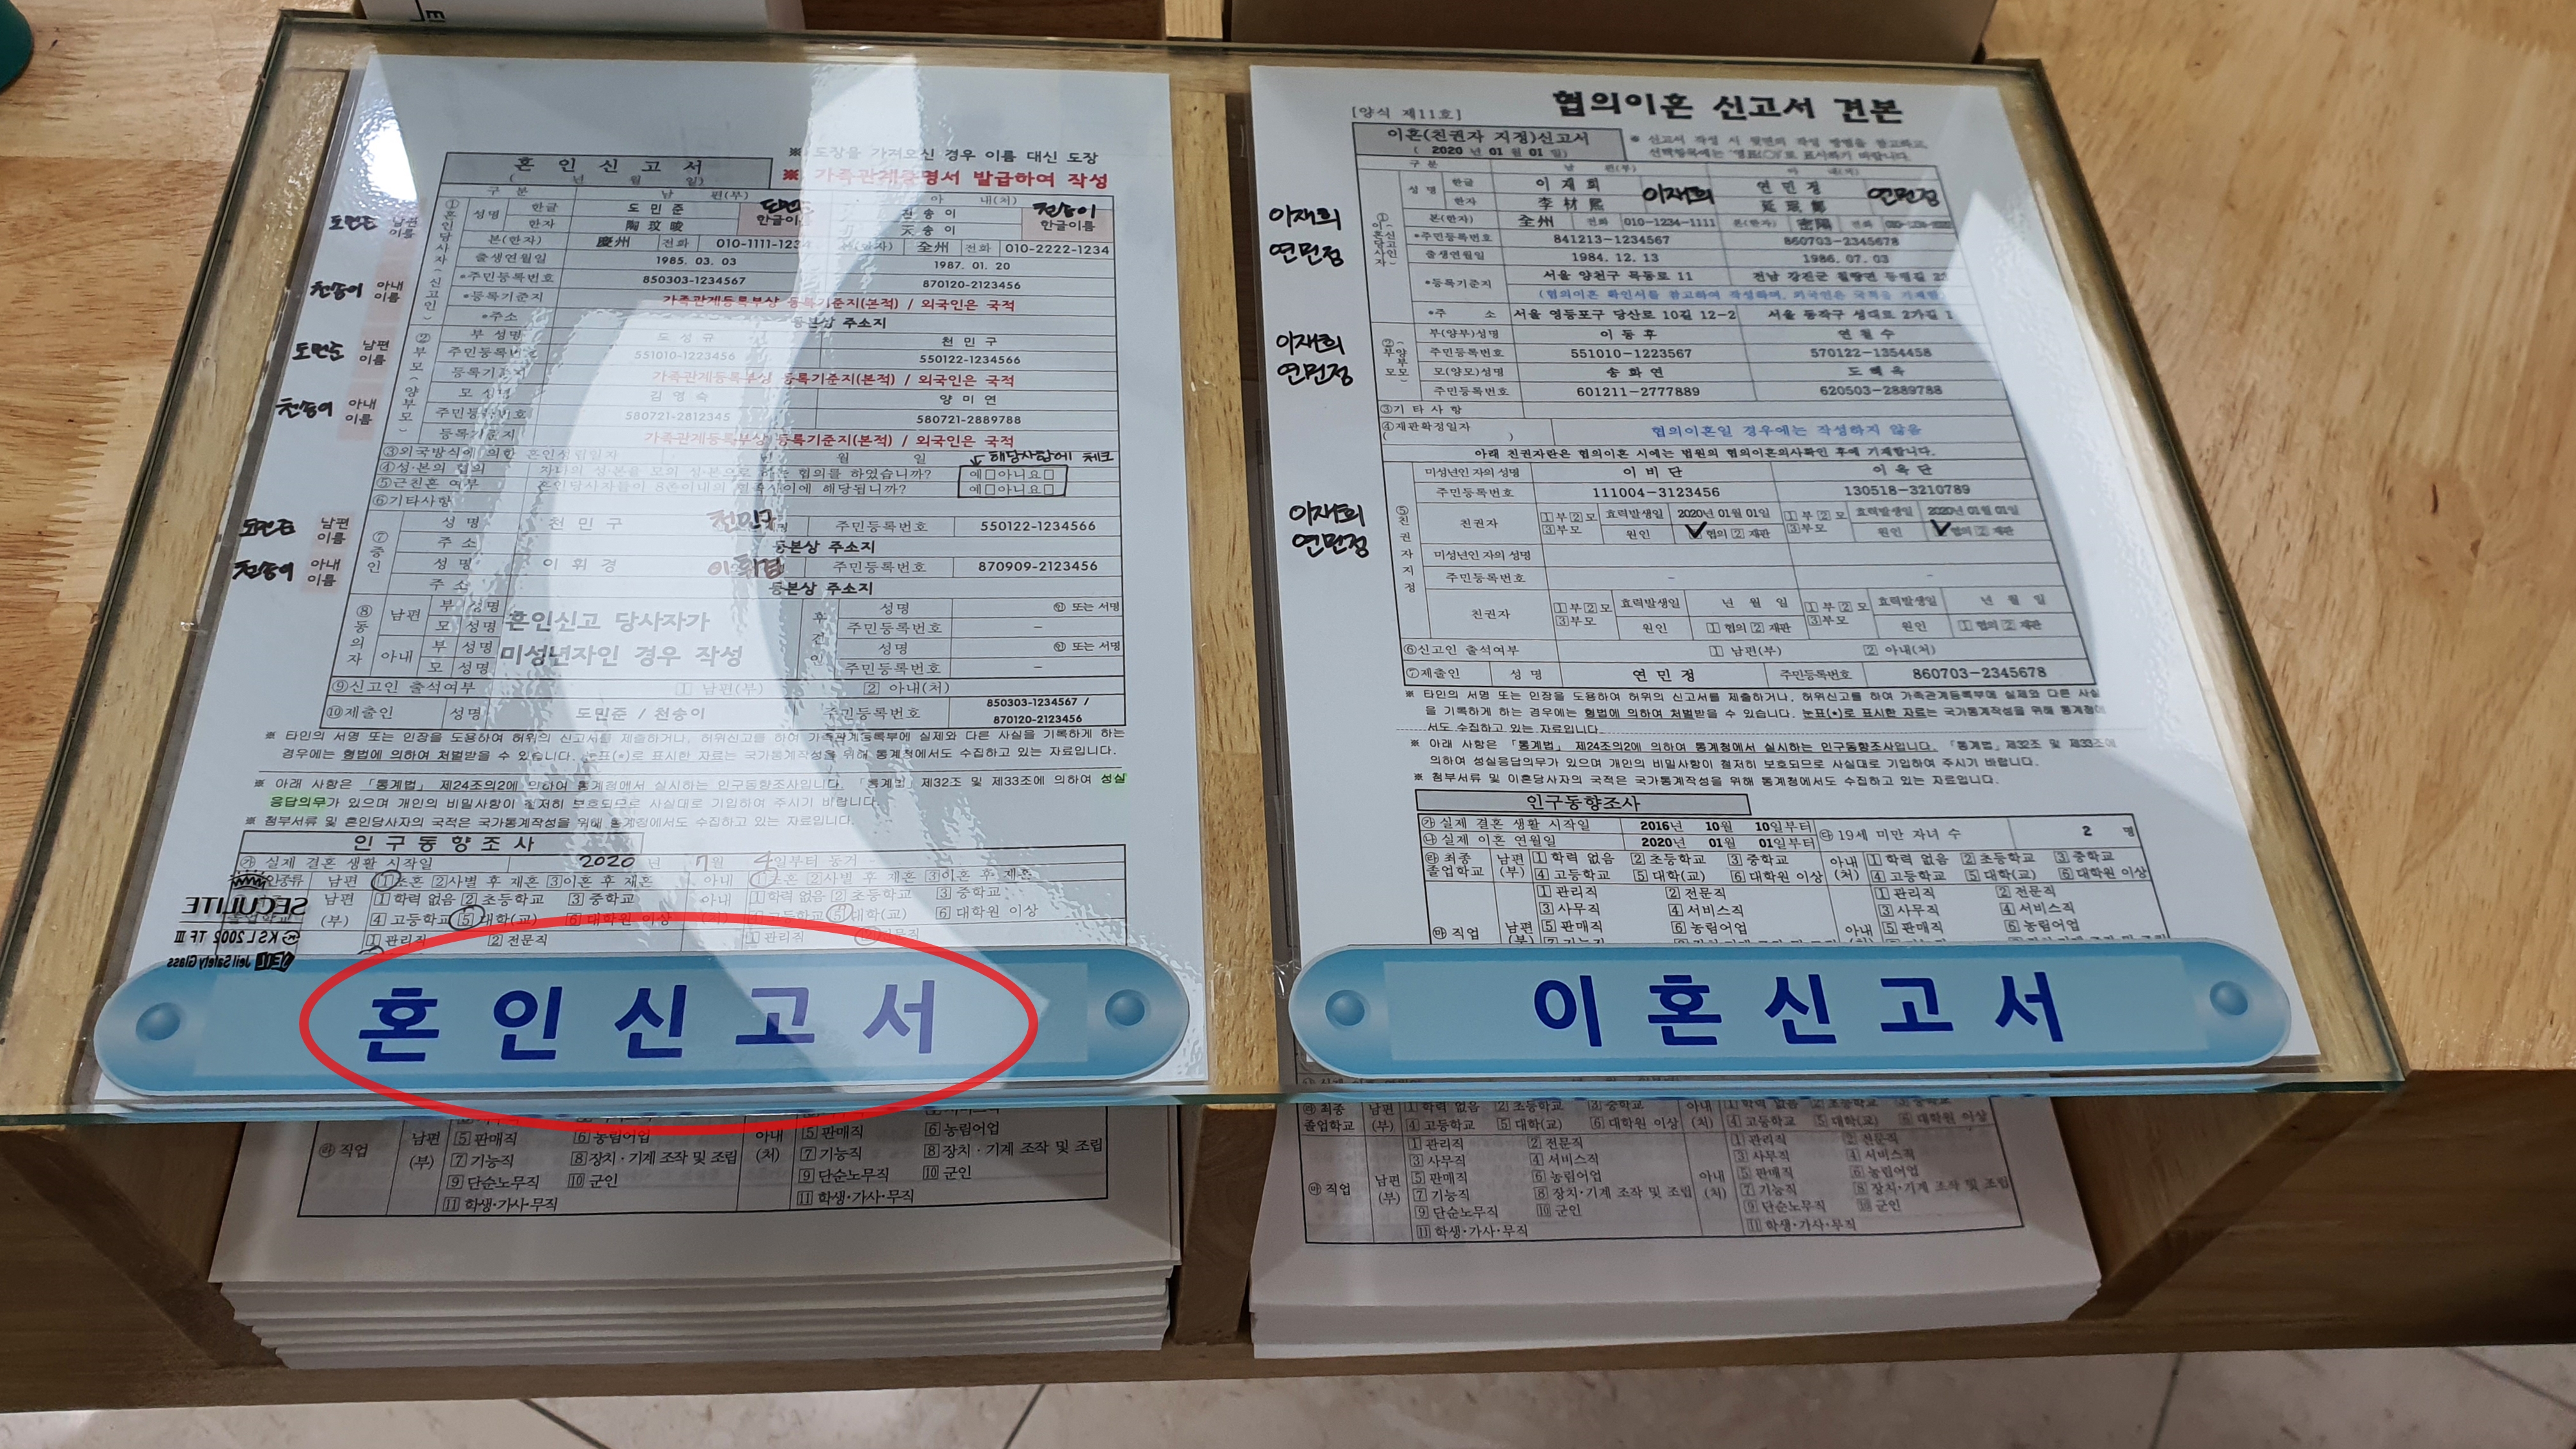 혼 인 신 고 서
( 년 월 일)
※ 도장을 가져오신 경우 이름 대신 도장
※ 가족관계증명서 발급하여 작성
구 분 남 편(부) 아 내(처)
성명 한글 도 민 준 한글이름 천 송 이 천송이 한글이름
한자 陶 玟 晙 송 이
본(한자) 慶州 전화 010-1111-1234 본(한자) 全州 전화 010-2222-1234
출생연월일 1985. 03. 03 1987. 01. 20
*주민등록번호 850303-1234567 870120-2123456
*등록기준지 가족관계등록부상 등록기준지(본적) / 외국인은 국적
*주소 등본상 주소지
부 성명 도 성 규 천 민 구
주민등록번호 551010-1223456 550122-1234566
등록기준지 가족관계등록부상 등록기준지(본적) / 외국인은 국적
모 성명 김 영 숙 양 미 연
주민등록번호 580721-2812345 580721-2889788
등록기준지 가족관계등록부상 등록기준지(본적) / 외국인은 국적
③외국방식에 의한 혼인성립일자 년 월 일 해당사항에 체크
④성·본의 협의 자녀의 성·본을 모의 성·본으로 하는 협의를 하였습니까? 예□아니요□
⑤근친혼 여부 혼인당사자들이 8촌이내의 혈족사이에 해당됩니까? 예□아니요□
⑥기타사항
⑦증인 성 명 천 민 구 천민구 주민등록번호 550122-1234566
주 소 등본상 주소지
성 명 이 휘 경 이휘경 주민등록번호 870909-2123456
주 소 등본상 주소지
⑧동의자 남편 부 성명 혼인신고 당사자가 후견인 성명 ㊞ 또는 서명
모 성명 주민등록번호 -
아내 부 성명 미성년자인 경우 작성 성명 ㊞ 또는 서명
모 성명 주민등록번호 -
⑨신고인 출석여부 1 남편(부) 2 아내(처)
⑩제출인 성명 도민준 / 천송이 주민등록번호 850303-1234567 /
870120-2123456
※ 타인의 서명 또는 인장을 도용하여 허위의 신고서를 제출하거나, 허위신고를 하여 가족관계등록부에 실제와 다른 사실을 기록하게 하는
경우에는 형법에 의하여 처벌받을 수 있습니다. 눈표(*)로 표시한 자료는 국가통계작성을 위해 통계청에서도 수집하고 있는 자료입니다.
※ 아래 사항은 「통계법」 제24조의2에 의하여 통계청에서 실시하는 인구동향조사입니다. 「통계법」제32조 및 제33조에 의하여 성실
응답의무가 있으며 개인의 비밀사항이 철저히 보호되므로 사실대로 기입하여 주시기 바랍니다.
※ 첨부서류 및 혼인당사자의 국적은 국가통계작성을 위해 통계청에서도 수집하고 있는 자료입니다.
인 구 동 향 조 사
㉮ 실제 결혼 생활 시작일 2020 년 7월 4일부터 동거
남편 1초혼 2사별 후 재혼 3이혼 후 재혼 아내 1초혼 2사별 후 재혼 3이혼 후 재혼
남편 1학력 없음 2초등학교 3중학교 아내 1학력 없음 2초등학교 3중학교
(부) 4고등학교 5대학(교) 6대학원 이상 (처) 4고등학교 5대학(교) 6대학원 이상
1관리직 2전문직 1관리직
SECULITE
KSL2002 TF Ⅲ
Jeil Safety Glass
혼 인 신 고 서
㉱ 직업 남편 (부) 5판매직 6농림어업 아내 (처) 5판매직 6농림어업
7기능직 8장치·기계 조작 및 조립 7기능직 8장치·기계 조작 및 조립
9단순노무직 10군인 9단순노무직 10군인
11학생·가사·무직 11학생·가사·무직
남편 이름
천송이 아내 이름
도민준 남편 이름
천송이 아내 이름
남편 이름
천송이 아내 이름
협의이혼 신고서 견본
[양식 제11호]
이혼(친권자 지정)신고서
( 2020 년 01 월 01 일)
※ 신고서 작성 시 뒷면의 작성 방법을 참고하고,
구 분 남 편(부) 아 내(처)
성 명 한글 이 재 희 이재희 연 민 정 연민정
한자 李 材 熙
본(한자) 全州 전화 010-1234-1111 본(한자) 密陽 전화
*주민등록번호 841213-1234567 860703-2345678
출생연월일 1984. 12. 13 1986. 07. 03
*등록기준지 서울 양천구 목동로 11 전남 강진군
*주 소 서울 영등포구 당산로 10길 12-2 서울 동작구 성대로 2가길 1
부(양부)성명 이 동 후 연 월 수
주민등록번호 551010-1223567 570122-1354458
모(양모)성명 송 화 연 도 혜 옥
주민등록번호 601211-2777889 620503-2889788
③기 타 사 항
④재판확정일자 ( ) 협의이혼일 경우에는 작성하지 않음
아래 친권자란은 협의이혼 시에는 법원의 협의이혼의사확인 후에 기재합니다.
미성년인 자의 성명 이 비 단 이 옥 단
주민등록번호 111004-3123456 130518-3210789
친권자 1부2모 3부모 효력발생일 2020년 01월 01일 1부2모 3부모 효력발생일 2020년 01월 01일
원인 협의 2재판 원인 협의 2재판
미성년인 자의 성명
주민등록번호 - -
친권자 1부2모 3부모 효력발생일 년 월 일 1부2모 3부모 효력발생일 년 월 일
원인 1협의 2재판 원인 1협의 2재판
⑥신고인 출석여부 1 남편(부) 2 아내(처)
⑦제출인 성 명 연 민 정 주민등록번호 860703-2345678
※ 타인의 서명 또는 인장을 도용하여 허위의 신고서를 제출하거나, 허위신고를 하여 가족관계등록부에 실제와 다른 사실
을 기록하게 하는 경우에는 형법에 의하여 처벌받을 수 있습니다. 눈표(*)로 표시한 자료는 국가통계작성을 위해 통계청에
서도 수집하고 있는 자료입니다.
※ 아래 사항은 「통계법」 제24조의2에 의하여 통계청에서 실시하는 인구동향조사입니다. 「통계법」제32조 및 제33조에
의하여 성실응답의무가 있으며 개인의 비밀사항이 철저히 보호되므로 사실대로 기입하여 주시기 바랍니다.
※ 첨부서류 및 이혼당사자의 국적은 국가통계작성을 위해 통계청에서도 수집하고 있는 자료입니다.
인구동향조사
㉮ 실제 결혼 생활 시작일 2016년 10월 10일부터 ㉰ 19세 미만 자녀 수 2 명
㉯ 실제 이혼 연월일 2020년 01월 01일부터
㉱ 최종 졸업학교 남편 (부) 1학력 없음 2초등학교 3중학교 아내 (처) 1학력 없음 2초등학교 3중학교
4고등학교 5대학(교) 6대학원 이상 4고등학교 5대학(교) 6대학원 이상
㉲ 직업 남편 (부) 1관리직 2전문직 아내 1관리직 2전문직
3사무직 4서비스직 3사무직 4서비스직
5판매직 6농림어업 5판매직 6농림어업
이 혼 신 고 서
㉱ 최종 졸업학교 남편 (부) 1학력 없음 2초등학교 아내 (처)
4고등학교 5대학(교) 6대학원 이상 4고등학교 5대학(교) 6대학원 이상
㉲ 직업 남편 (부) 1관리직 2전문직 아내 (처) 1관리직 2전문직
3사무직 4서비스직 3사무직 4서비스직
5판매직 6농림어업 5판매직 6농림어업
7기능직 8장치·기계 조작 및 조립 7기능직 8장치·기계 조작 및 조립
9단순노무직 10군인 9단순노무직 10군인
11학생·가사·무직 11학생·가사·무직
이재희
연민정
이재희
연민정
이재희
연민정